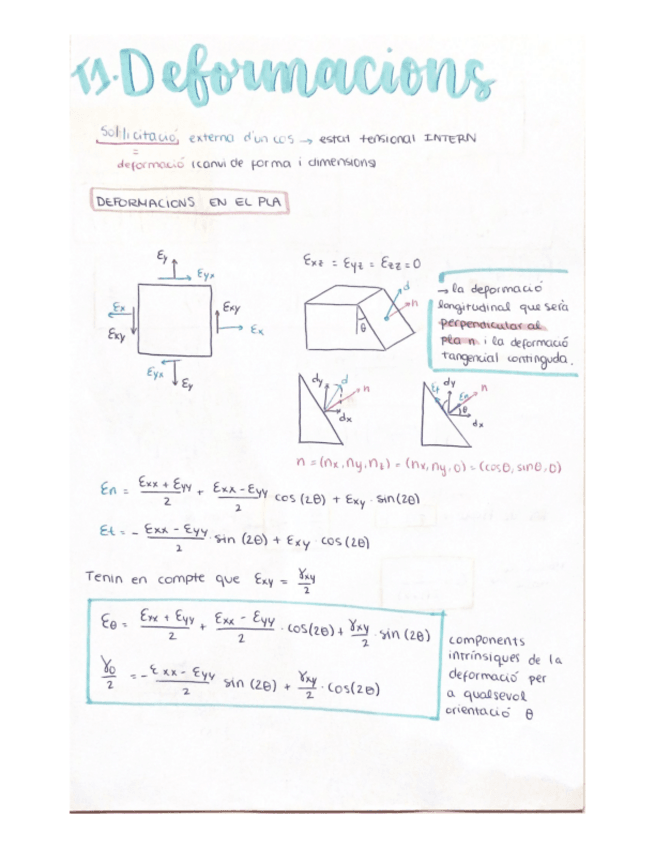 T1. Deformacions
Sol·licitació externa d'un cos → estat tensional INTERN
=
deformació (canvi de forma i dimensions)
DEFORMACIONS EN EL PLA
εy
εyx
εx
εxy
εxy
εx
εyx
εy
εxz = εyz = εzz = 0
d
n
θ
→ la deformació
longitudinal que serà
perpendicular al
pla n i la deformació
tangencial continguda.
dy d n
dx
εt dy εn n
θ
dx
n = (nx, ny, nz) = (nx, ny, 0) = (cosθ, sinθ, 0)
εn = (εxx + εyy)/2 + (εxx - εyy)/2 cos (2θ) + εxy · sin(2θ)
εt = - (εxx - εyy)/2 · sin (2θ) + εxy · cos (2θ)
Tenin en compte que εxy = γxy/2
εθ = (εxx + εyy)/2 + (εxx - εyy)/2 · cos(2θ) + γxy/2 · sin (2θ)
γθ/2 = - (εxx - εyy)/2 sin (2θ) + γxy/2 · cos(2θ)
components
intrínsiques de la
deformació per
a qualsevol
orientació θ